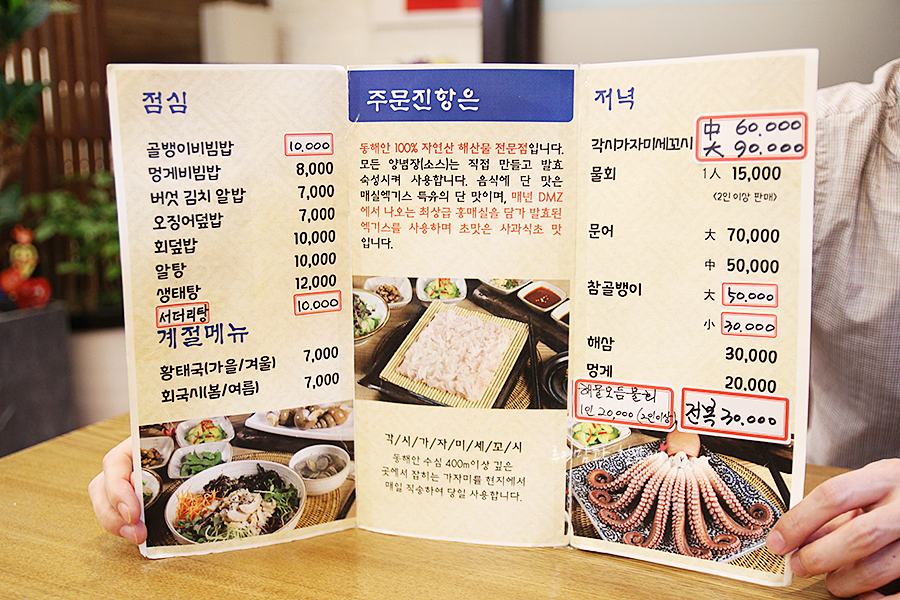 점심
골뱅이비빔밥 10,000
멍게비빔밥 8,000
버섯 김치 알밥 7,000
오징어덮밥 7,000
회덮밥 10,000
알탕 10,000
생태탕 12,000
서더리탕 10,000
계절메뉴
황태국(가을/겨울) 7,000
회국시(봄/여름) 7,000
주문진항은
동해안 100% 자연산 해산물 전문점입니다.
모든 양념장(소스)는 직접 만들고 발효
숙성시켜 사용합니다. 음식에 단 맛은
매실엑기스 특유의 단 맛이며, 매년 DMZ
에서 나오는 최상급 홍매실을 담가 발효된
엑기스를 사용하며 초맛은 사과식초 맛
입니다.
각시가자미세꼬시
동해안 수심 400m이상 깊은
곳에서 잡히는 가자미를 현지에서
매일 직송하여 당일 사용합니다.
저녁
각시가자미세꼬시 中 60.000
大 90.000
물회 1人 15,000
<2인이상 판매>
문어 大 70,000
中 50,000
참골뱅이 大 50,000
小 30,000
해삼 30,000
멍게 20.000
해물모듬물회
1인 20,000 (2인이상)
전복 30.000